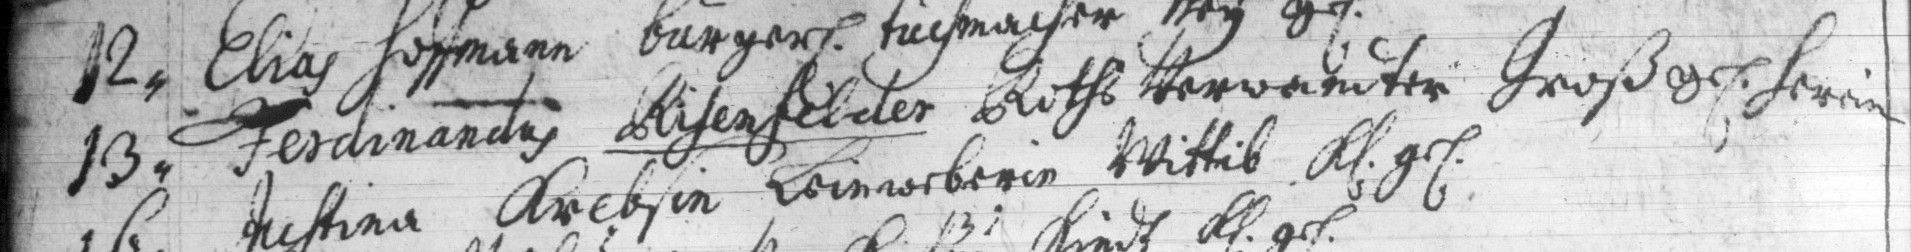 12. Elias Hoffmann burgerl. tuchmacher
13. Ferdinandus Risenfelder Raths Verwandter Groß gel. herein
Justina Krebsin Leinweberin Wittib Kl. gel.
Kindt Kl. gel.